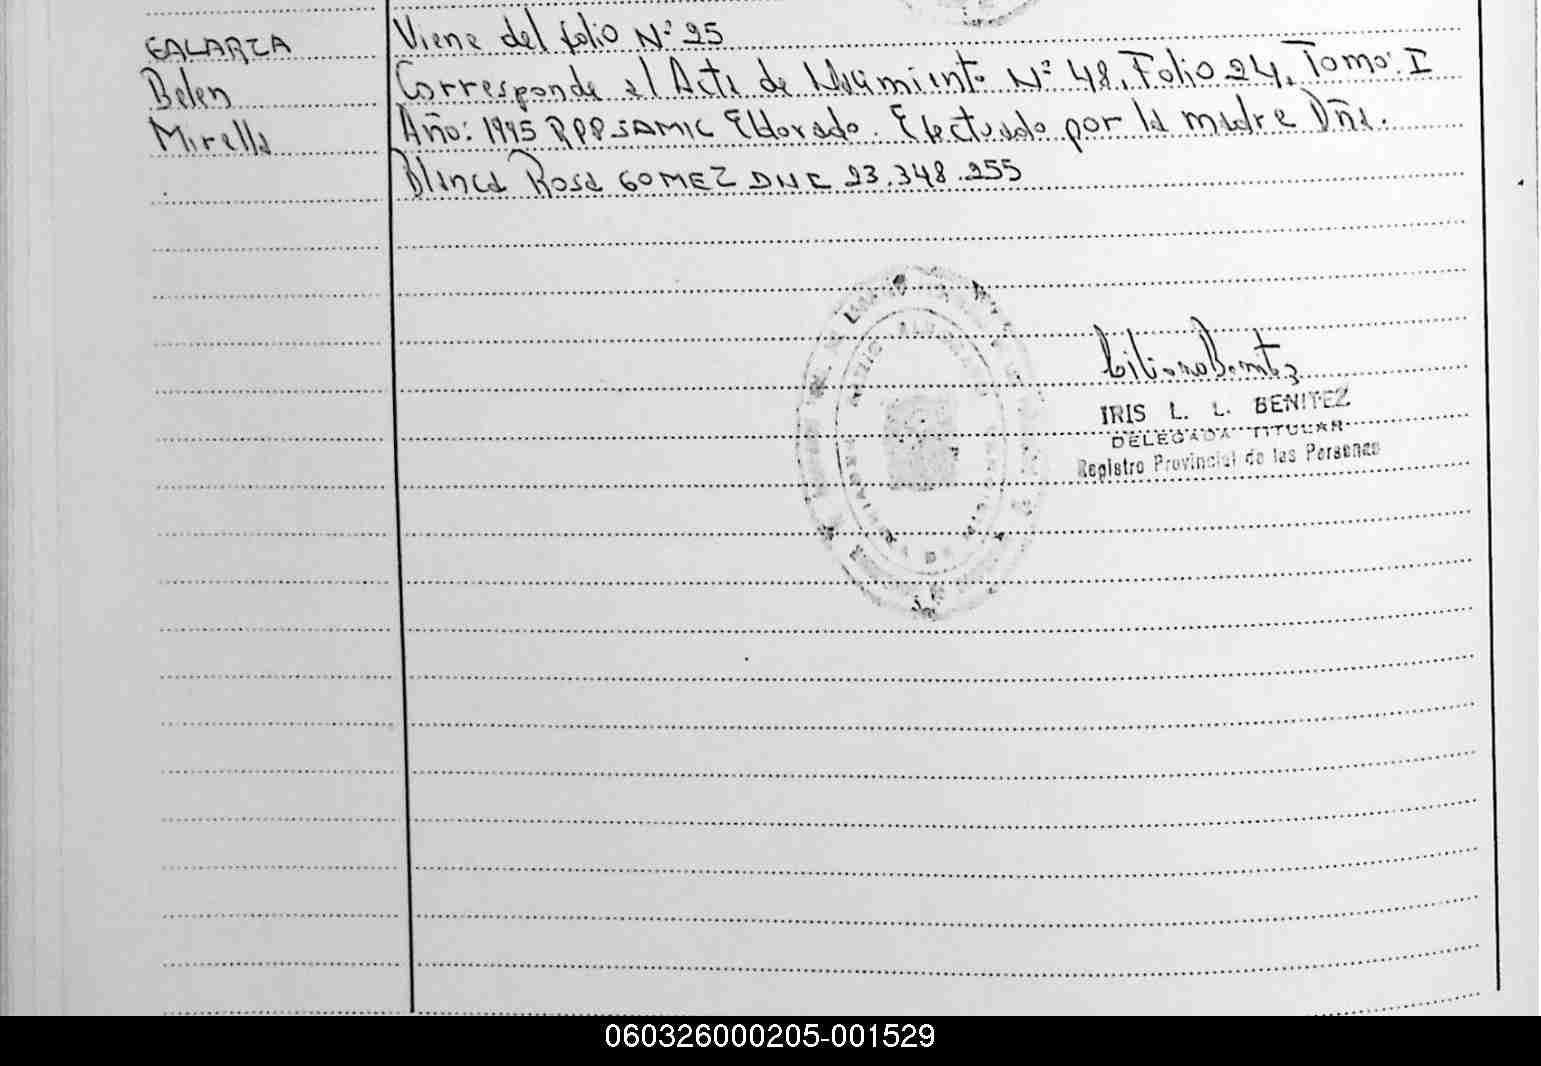 GALARZA
Belen
Mirella
Viene del folio Nº 25
Corresponde al Acta de Nacimiento Nº 48, Folio 24, Tomo: I
Año: 1995 RPP SAMIC Eldorado. Efectuado por la madre Dña.
Blanca Rosa GOMEZ DNI 23.348.255
IRIS L. L. BENITEZ
DELEGADA TITULAR
Registro Provincial de las Personas
060326000205-001529